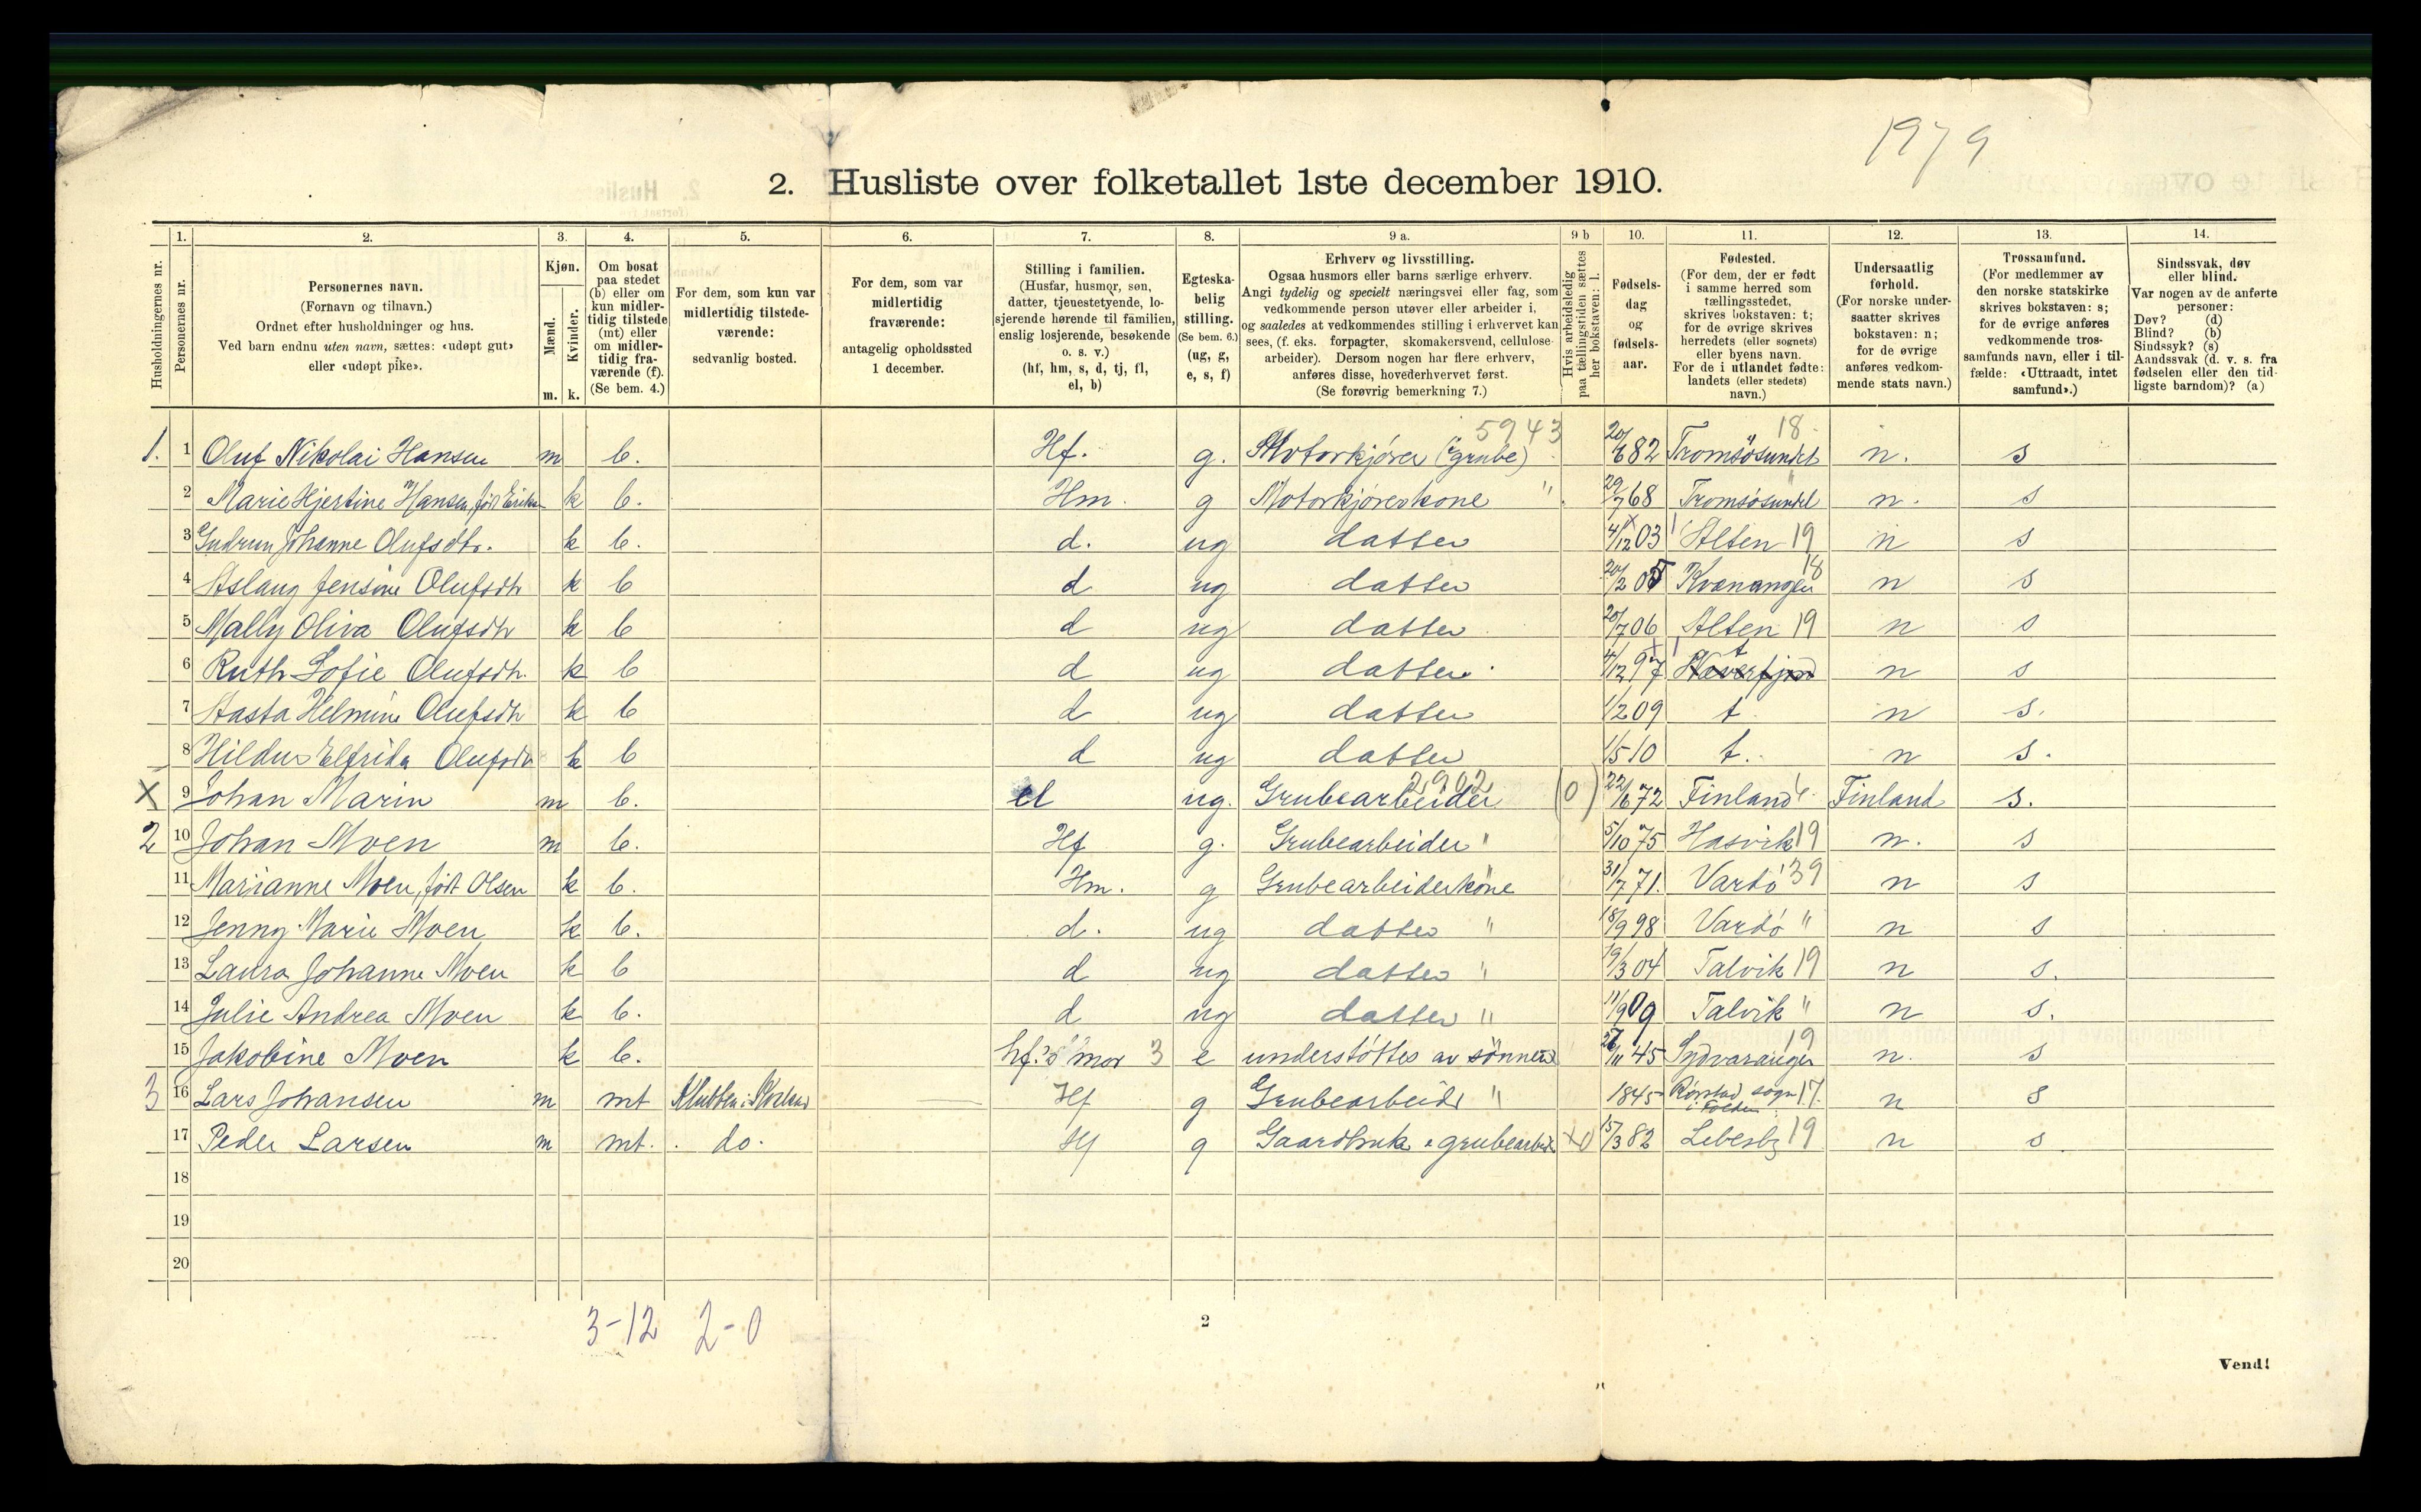 1979
2. Husliste over folketallet 1ste december 1910.
Husholdningernes nr.
1. Personernes nr.
2. Personernes navn.
(Fornavn og tilnavn.)
Ordnet efter husholdninger og hus.
Ved barn endnu uten navn, sættes: «udøpt gut»
eller «udøpt pike».
3. Kjøn.
Mænd. m.
Kvinder. k.
4. Om bosat
paa stedet
(b) eller om
kun midler-
tidig tilstede
(mt) eller
om midler-
tidig fra-
værende (f).
(Se bem. 4.)
5. For dem, som kun var
midlertidig tilstede-
værende:
sedvanlig bosted.
6. For dem, som var
midlertidig
fraværende:
antagelig opholdssted
1 december.
7. Stilling i familien.
(Husfar, husmor, søn,
datter, tjenestetyende, lo-
sjerende hørende til familien,
enslig losjerende, besøkende
o. s. v.)
(hf, hm, s, d, tj, fl,
el, b)
8. Egteska-
belig
stilling.
(Se bem. 6.)
(ug, g,
e, s, f)
9 a. Erhverv og livsstilling.
Ogsaa husmors eller barns særlige erhverv.
Angi tydelig og specielt næringsvei eller fag, som
vedkommende person utøver eller arbeider i,
og saaledes at vedkommendes stilling i erhvervet kan
sees, (f. eks. forpagter, skomakersvend, cellulose-
arbeider). Dersom nogen har flere erhverv,
anføres disse, hovederhvervet først.
(Se forøvrig bemerkning 7.)
9 b Hvis arbeidsledig
paa tællingstiden sættes
her bokstaven: l.
10. Fødsels-
dag
og
fødsels-
aar.
11. Fødested.
(For dem, der er født
i samme herred som
tællingsstedet,
skrives bokstaven: t;
for de øvrige skrives
herredets (eller sognets)
eller byens navn.
For de i utlandet fødte:
landets (eller stedets)
navn.)
12. Undersaatlig
forhold.
(For norske under-
saatter skrives
bokstaven: n;
for de øvrige
anføres vedkom-
mende stats navn.)
13. Trossamfund.
(For medlemmer av
den norske statskirke
skrives bokstaven: s;
for de øvrige anføres
vedkommende tros-
samfunds navn, eller i til-
fælde: «Uttraadt, intet
samfund».)
14. Sindssvak, døv
eller blind.
Var nogen av de anførte
personer:
Døv? (d)
Blind? (b)
Sindssyk? (s)
Aandssvak (d. v. s. fra
fødselen eller den tid-
ligste barndom)? (a)
5943 18
1. 1 Oluf Nikolai Hansen m b. Hf. g. Motorkjører (grube) 20/6 82 Tromsösundet n. s
2 Marie Hjertine Hansen, født k b. Hm. g Motorkjørerkone " 29/7 68 Tromsösundet n. s
3 Gudrun Johanne Olufsdtr. k b. d. ug datter 4/12 03 Alten 19 n s
4 Aslaug Jensine Olufsdtr k b d ug datter 20/2 05 Kvænangen 18 n s
5 Mally Oliva Olufsdtr k b d ug datter 20/7 06 Alten 19 n s
6 Ruth Sofie Olufsdtr. k b d ug datter 4/12 97 t n s
7 Aasta Helmine Olufsdtr k b d ug datter 1/2 09 t n s.
8 Hildur Elfrida Olufsdtr k b d ug datter 1/5 10 t. n s.
2902
X 9 Johan Marin m b. el ug. Grubearbeider (0) 22/6 72 Finland Finland s.
2 10 Johan Moen m b. Hf g. Grubearbeider " 5/10 75 Hasvik 19 n. s
11 Marianne Moen, født Olsen k b. Hm. g Grubearbeiderkone 31/7 71. Vardö 39 n s
12 Jenny Marie Moen k b. d. ug datter " 18/9 98 Vardö " n s
13 Laura Johanne Moen k b d ug datter " 19/3 04 Talvik 19 n s.
14 Julie Andrea Moen k b. d ug datter " 11/9 09 Talvik " n s.
15 Jakobine Moen k b. hf.'s mor 3 e understöttes av sönnen 26/11 45 Sydvaranger 19 n. s
3 16 Lars Johansen m mt Hf g Grubearbeider " 1845 Rørstad sogn i Folden 17. n s
17 Peder Larsen m mt. do. Hf g Gaardbruk & grubearbeid x0 15/3 82 Lebesby 19 n s
18
19
20
3-12 2-0
2
Vend!